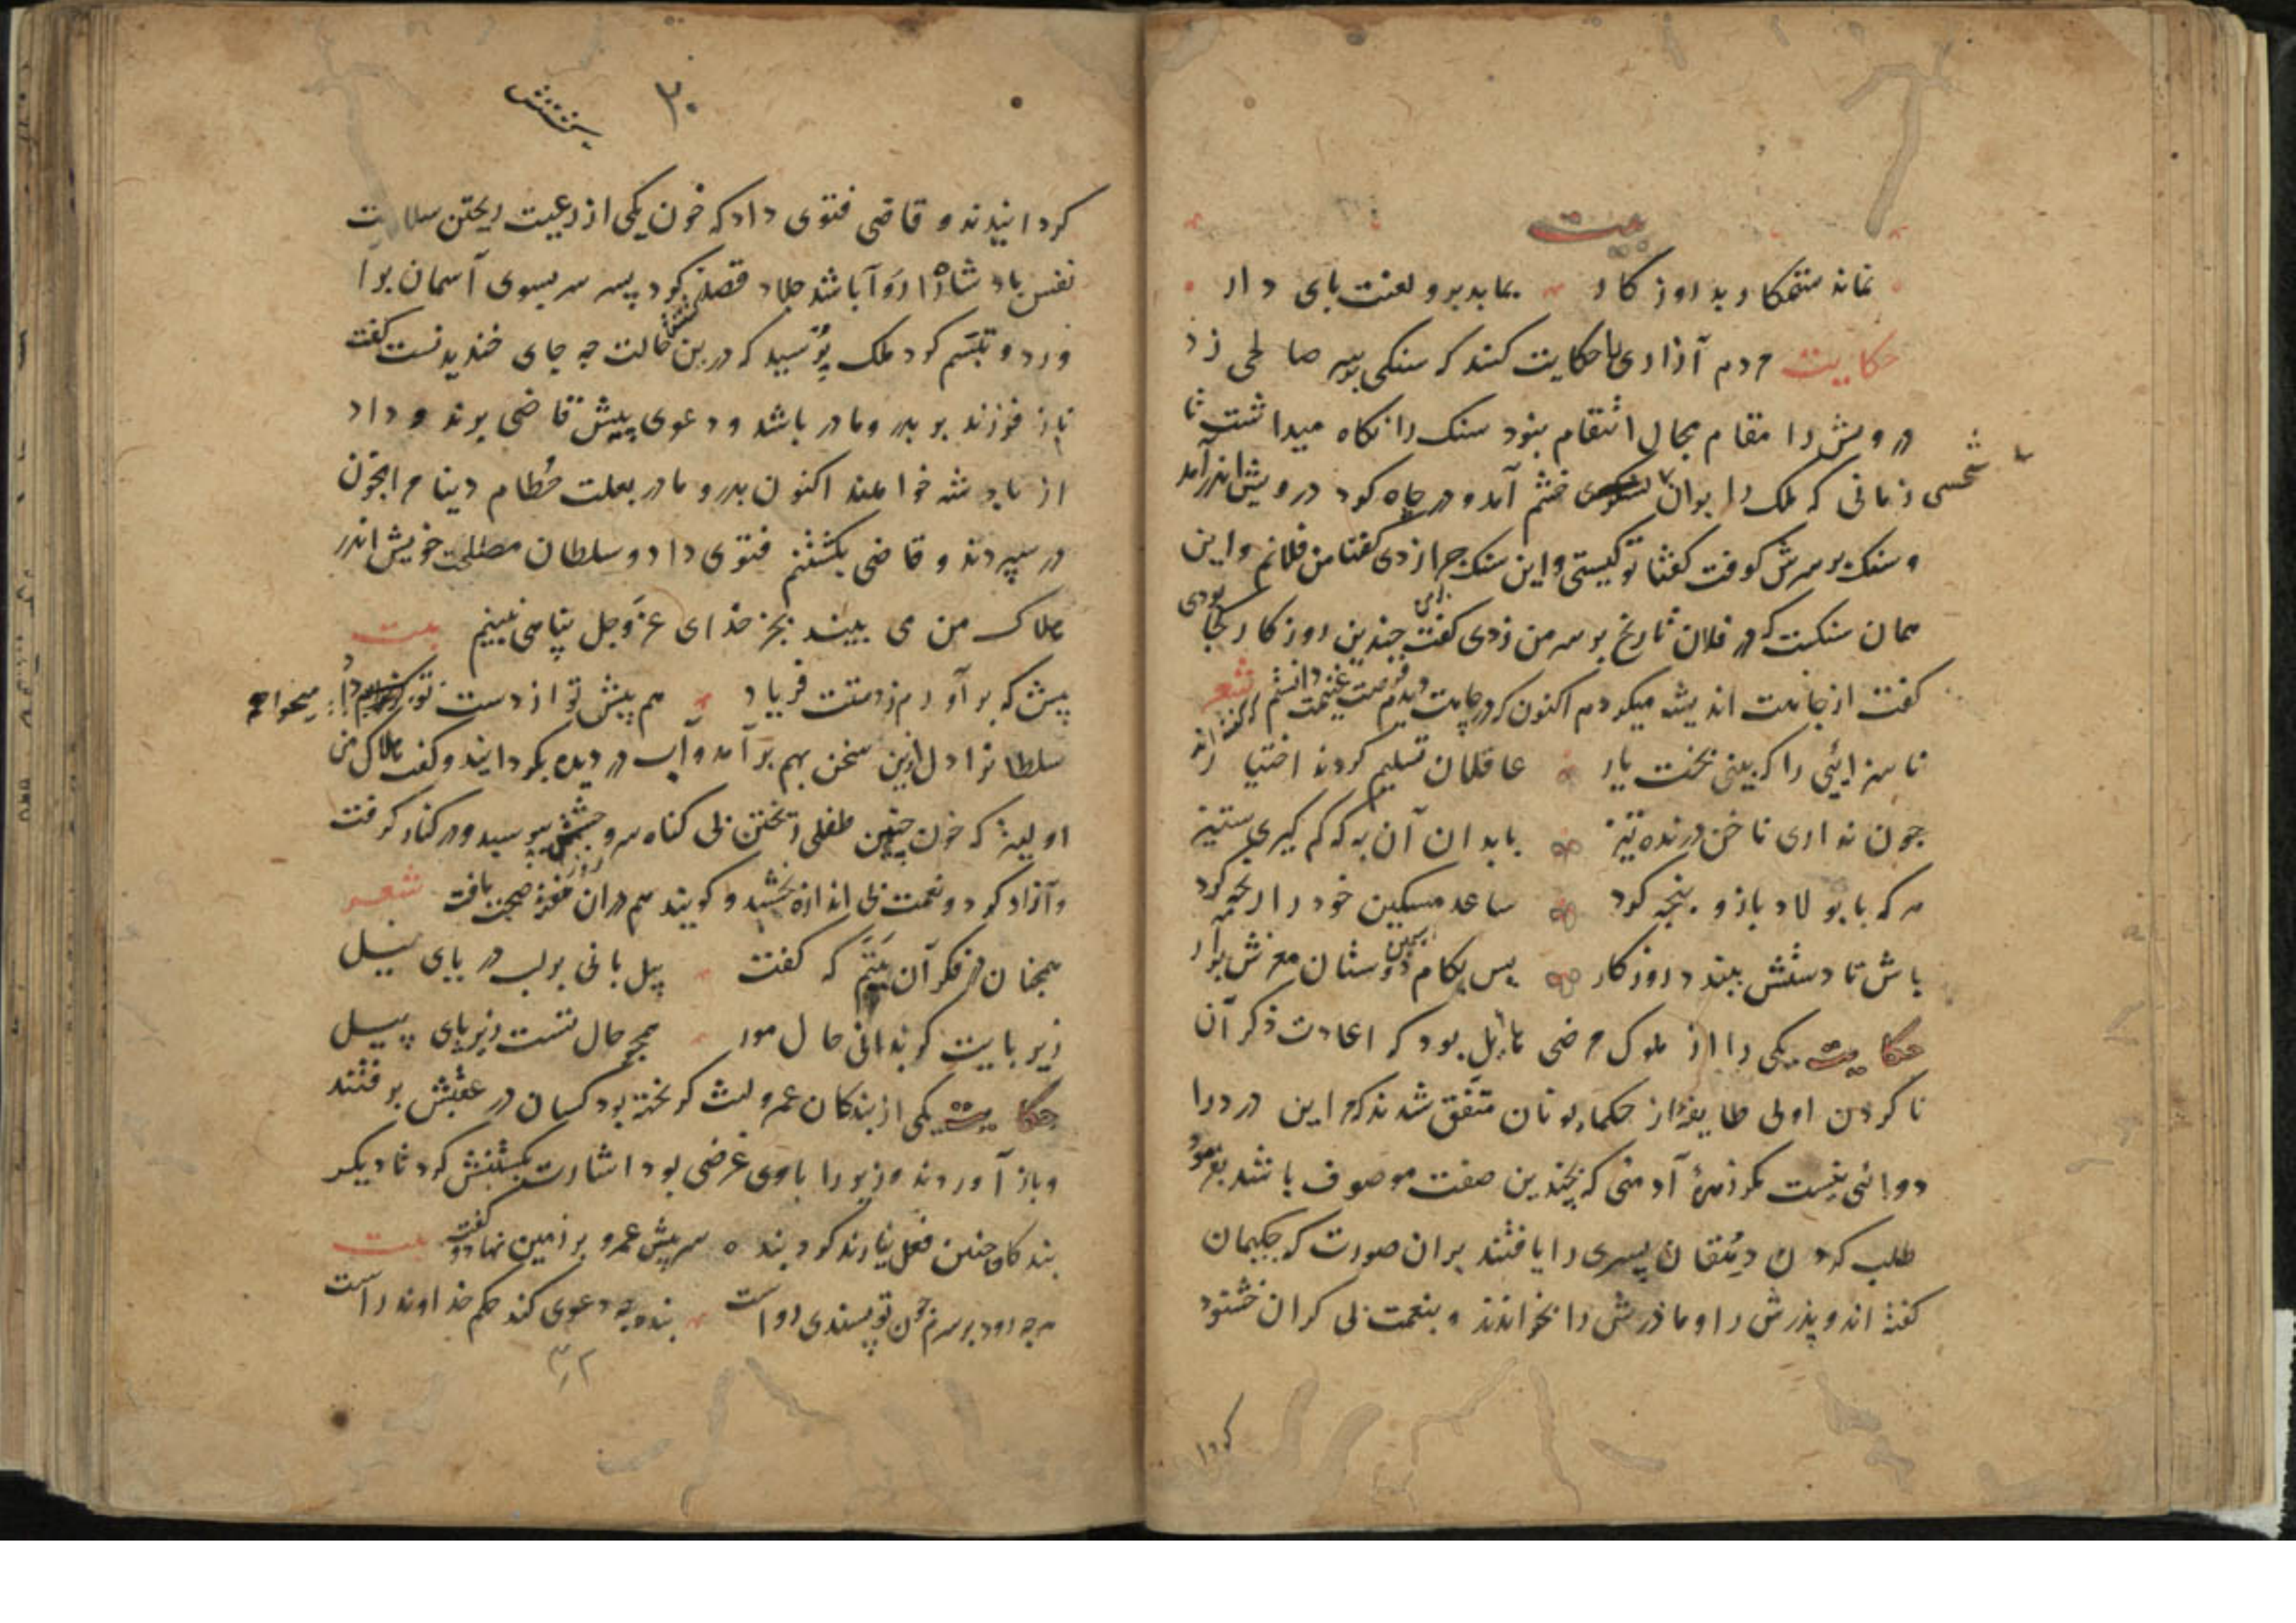 بیت
نماند ستمکار بد روزکار بماند برو لعنت بای دار
حکایت مردم آزاری را حکایت کنند که سنکی بر سر صالحی زد
درویش را مقام مجال انتقام نبود سنک را نکاه میداشت تا
زمانی که ملک را بران لشکری خشم آمد و در چاه کرد درویش اندر آمد
شخصی
و سنک بر سرش کوفت کفتا تو کیستی و این سنک چرا زدی کفتا من فلانم و این
همان سنکست که در فلان تاریخ بر سر من زدی کفت چندین روزکار کجا بودی
کفت از جاهت اندیشه میکردم اکنون که در چاهت دیدم فرصت غنیمت دانستم که کفته اند شعر
ناسزایی را که بینی بخت یار عاقلان تسلیم کردند اختیار
چون نداری ناخن درنده تیز با بدان آن به که کم کیری ستیز
هر که با بولاد بازو بنجه کرد ساعد مسکین خود را رنجه کرد
سیمین
باش تا دستش ببندد روزکار بس بکام دوستان مغزش برار
حکایت یکی را از ملوک مرضی هایل بود که اعادت ذکر آن
نا کردن اولی طایفه از حکماء یونان متفق شدند که این درد را
دوائی نیست مکر زهرهٔ آدمی که بچندین صفت موصوف باشد بفرمود
طلب کردن دهقان پسری را یافتند بران صورت که حکیمان
کفته اند و پدرش را و مادرش را بخواندند و بنعمت بی کران خشنود
کردا
۳۰
بخشش
کردانیدند و قاضی فتوی داد که خون یکی از رعیت ریختن سلامت
نفس بادشاه را روا باشد جلاد قصد کرد پسر سر بسوی آسمان برا
ورد و تبسم کرد ملک پرسید که درین حالت چه جای خندیدنست کفت
ناز فرزند بر بدر و مادر باشد و دعوی پیش قاضی برند و داد
از بادشه خواهند اکنون بدر و مادر بعلت حطام دینا مرا بخون
در سپردند و قاضی بکشتنم فتوی داد و سلطان مصلحت خویش اندر
هلاک من می بیند بجز خدای عز وجل پناهی نبینم بیت
پیش که بر آورم ز دستت فریاد هم پیش تو از دست تو میخواهم داد
سلطان را دل ازین سخن بهم بر آمد و آب در دیده بکردانید و کفت هلاک من
اولیتر که خون چنین طفلی ریختن بی کناه سر و چشمش ببوسید و در کنار کرفت
و آزاد کرد و نعمت بی اندازه بخشید و کویند هم دران هفته صحت یافت شعر
همچنان در فکر آن بیتم که کفت پیل بانی بر لب دریای نیل
زیر بایت کر بدانی حال مور همچو حال تست زیر پای پیل
حکایت یکی از بندکان عمرو لیث کریخته بود کسان در عقبش برفتند
و باز آوردند وزیر را با وی غرضی بود اشارت بکشتنش کرد تا دیکر
بندکان چنین فعل نیارند کرد بنده سر پیش عمرو بر زمین نهاد و کفت بیت
هرچه رود بر سرم چون تو پسندی رواست بنده چه دعوی کند حکم خداوند راست